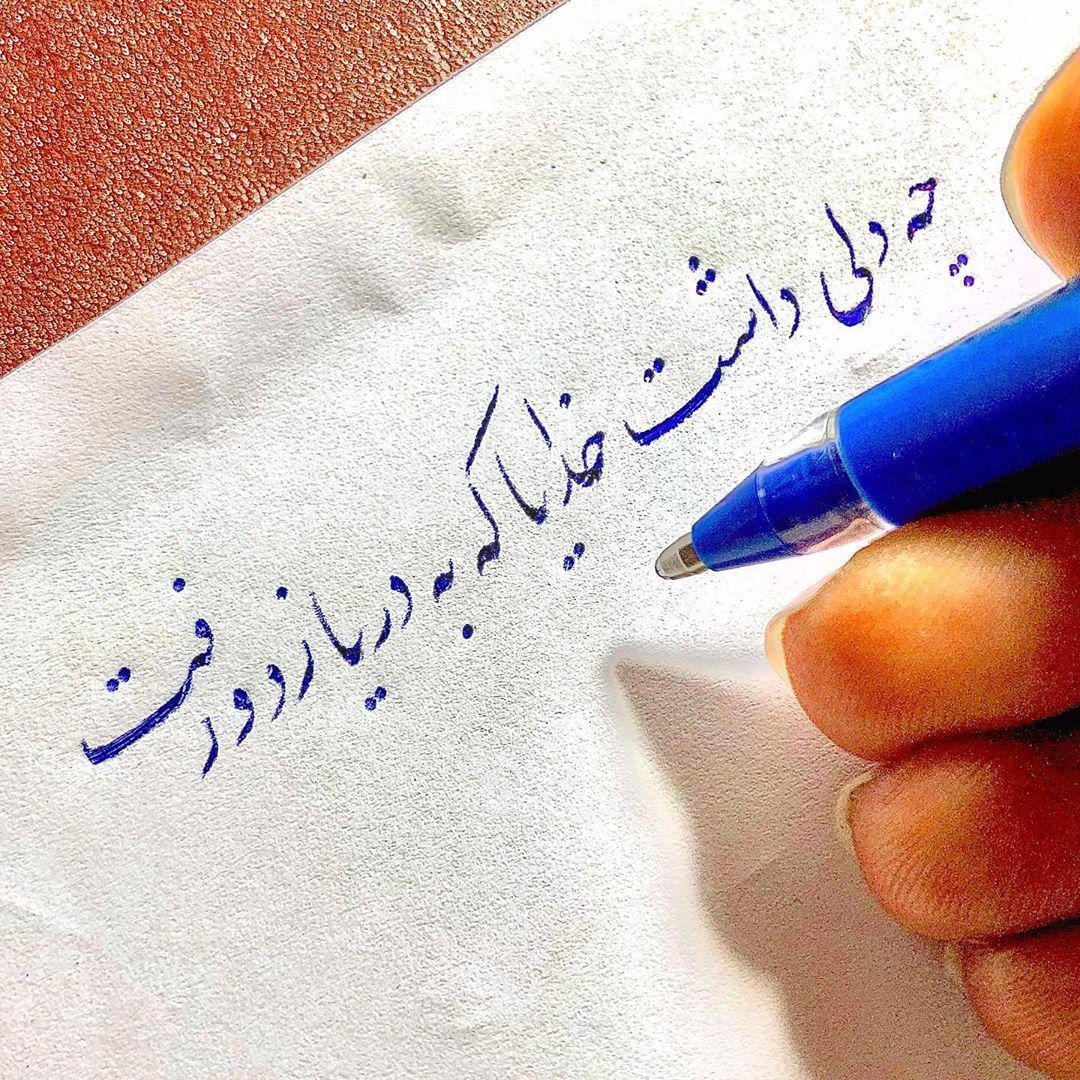 چه دلی داشت خدایا که به دریا زد و رفت